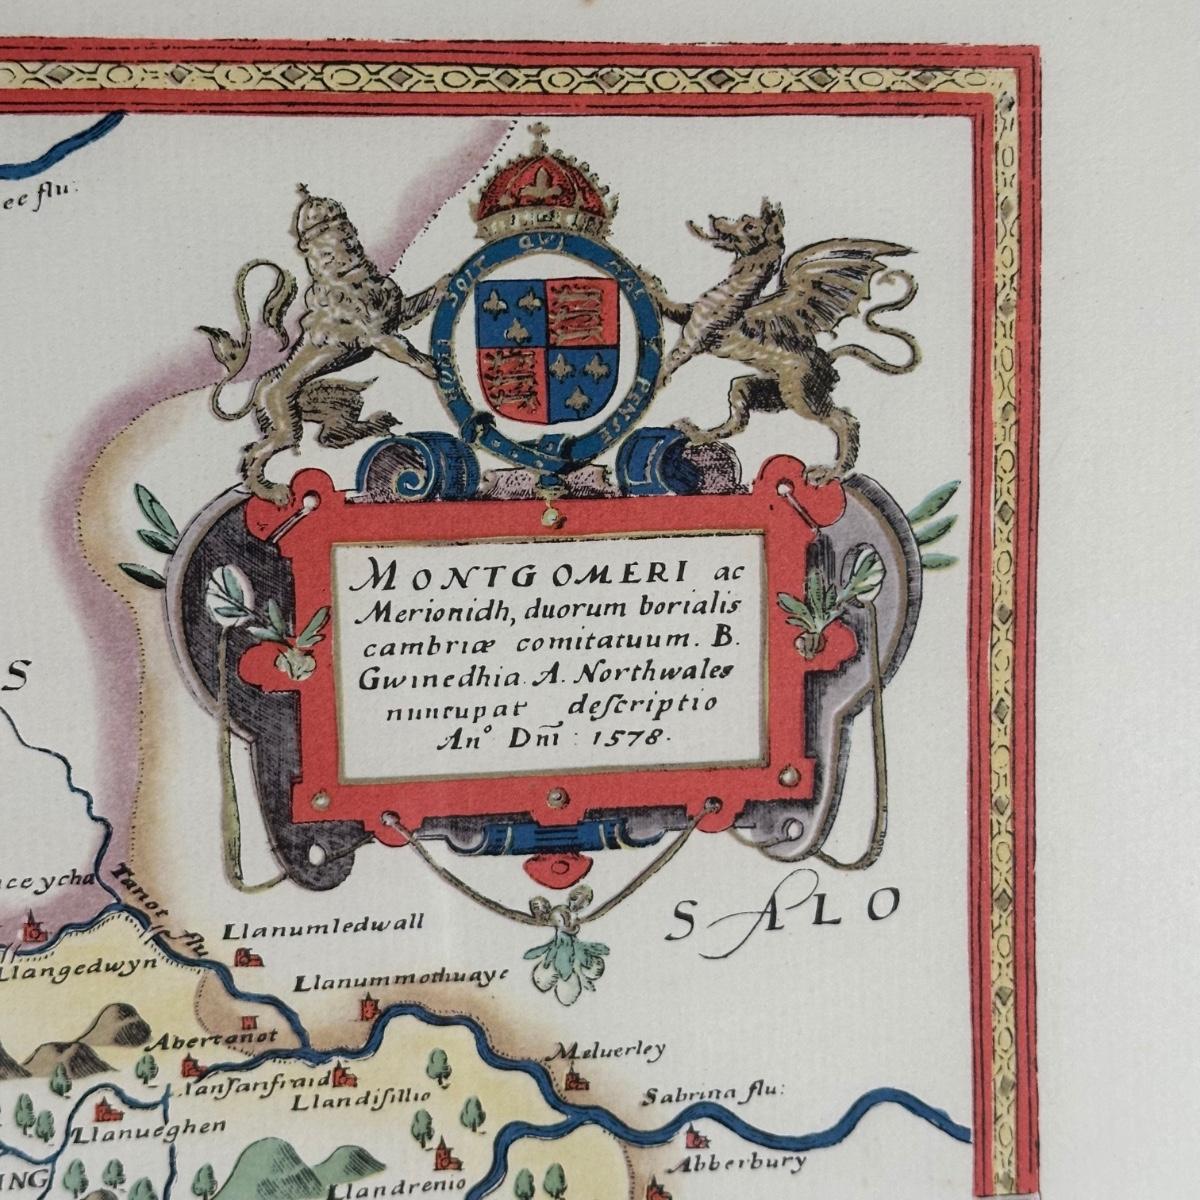 ee flu:
HONI SOIT QUI MAL Y PENSE
MONTGOMERI ac
Merionidh, duorum borialis
cambriæ comitatuum. B.
Gwinedhia. A. Northwales
nuncupat deſcriptio
An° Dñi : 1578.
S
SALO
ceycha
Tanot flu
Llanumledwall
Llangedwyn
Llanummothuaye
Abertanot
Meluerley
lanſanfraid
Llandiſillio
Sabrina flu:
Llanueghen
Abberbury
ING
Llandrenio